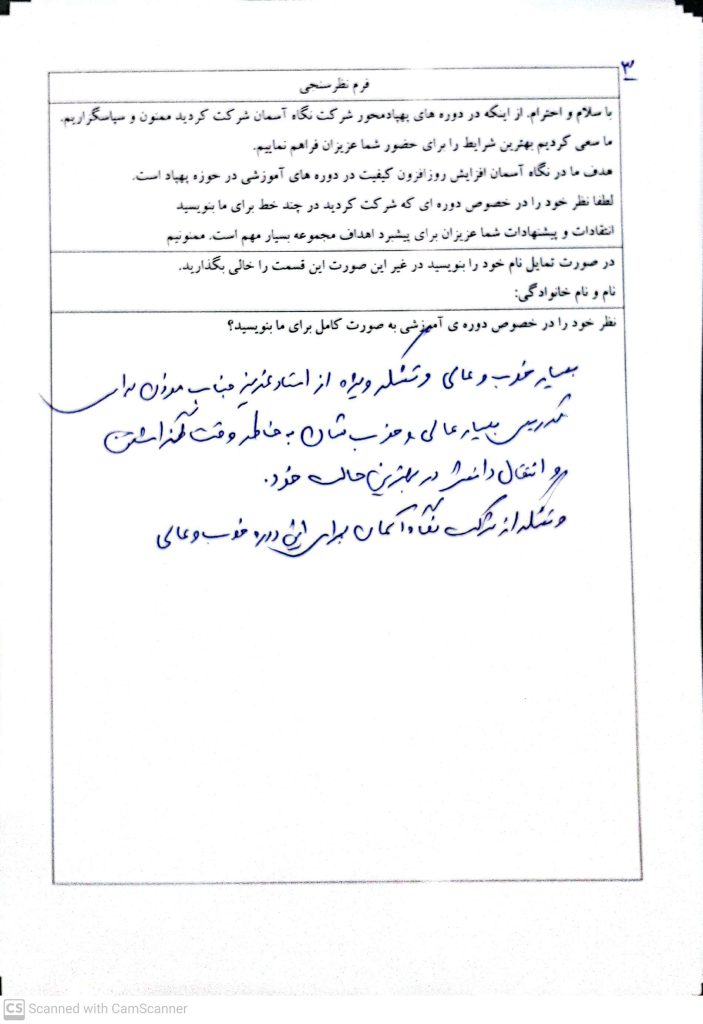 ۳
فرم نظرسنجی
با سلام و احترام. از اینکه در دوره های پهپادمحور شرکت نگاه آسمان شرکت کردید ممنون و سپاسگزاریم.
ما سعی کردیم بهترین شرایط را برای حضور شما عزیزان فراهم نماییم.
هدف ما در نگاه آسمان افزایش روزافزون کیفیت در دوره های آموزشی در حوزه پهپاد است.
لطفا نظر خود را در خصوص دوره ای که شرکت کردید در چند خط برای ما بنویسید
انتقادات و پیشنهادات شما عزیزان برای پیشبرد اهداف مجموعه بسیار مهم است. ممنونیم
در صورت تمایل نام خود را بنویسید در غیر این صورت این قسمت را خالی بگذارید.
نام و نام خانوادگی:
نظر خود را در خصوص دوره ی آموزشی به صورت کامل برای ما بنویسید؟
بسیار خوب و عالی و تشکر ویژه از استاد عزیز جناب موذن برای
تدریس بسیار عالی و خوب شان به خاطر وقت گذاشتن
و انتقال دانش در بهترین حالت خود.
و تشکر از شرکت نگاه آسمان برای این دوره خوب و عالی
CS Scanned with CamScanner